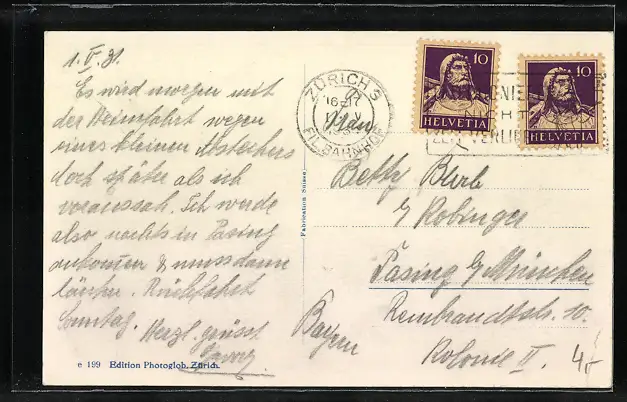 1. V. 31.
Es wird morgen mit
der Heimfahrt wegen
eines kleinen Abstechers
doch später als ich
voraussah. Ich werde
also nachts in Pasing
ankommen & muss dann
Rückfahrt
Sonntag. Herzl. grüsst
e 199 Edition Photoglob, Zürich.
Fabrication Suisse
ZÜRICH 3
16-17
FIL. BAHNHOF
10
HELVETIA
10
HELVETIA
Betty
b/ Kobinger
Pasing b/ München
Rembrandtstr. 10.
Kolonie II.
Bayern